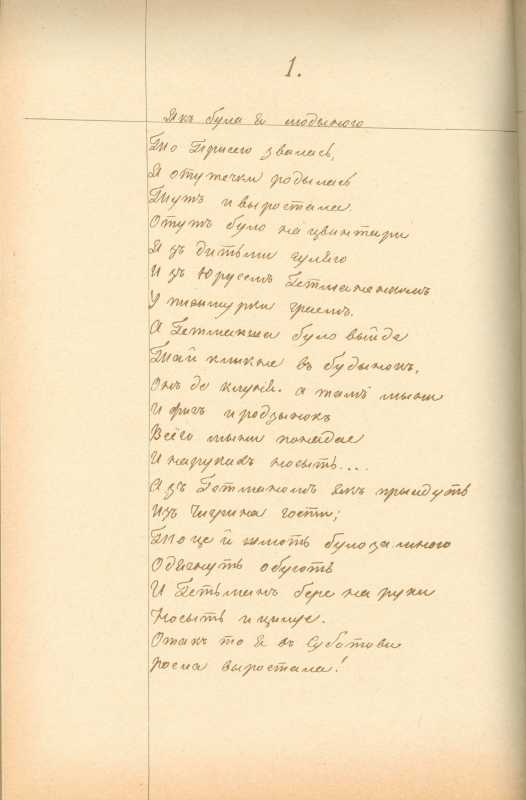 1.
Якъ була я людыною
То Прісею звалась,
Я отутечки родылась
Тутъ и выростала.
Отутъ було на цвинтари
Я зъ дитьми гуляю
И зъ Юрусемъ Гетманенкомъ
У пижмурки граемъ.
А Гетманша було выйде
Тай кликне въ будынокъ,
Онъ де клуня. а тамъ мыни
И фигъ и родзынокъ
Всёго мыни понадае
И нарукахъ носыть....
А зъ Гетманомъ якъ прыидуть
Изъ Чигрина гости;
То це й шлють було за мною
Одягнуть обують
И Гетьманъ бере на руки
Носыть и цилуе.
Отакъ то я въ Суботови
Росла выростала!